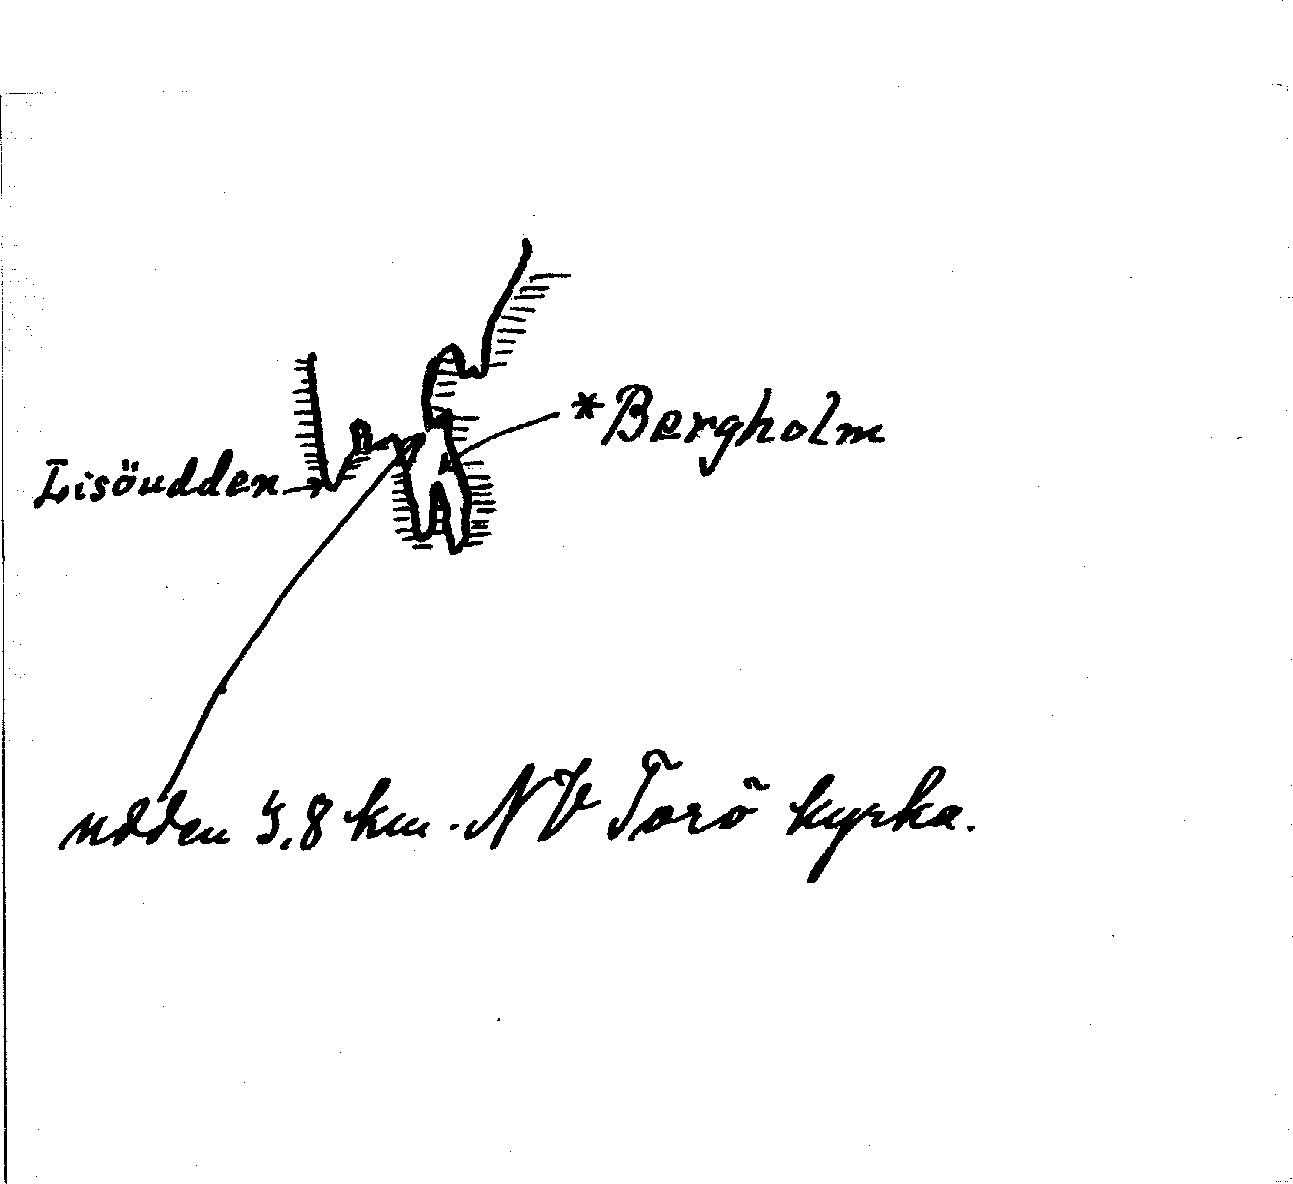 *Bergholm
Lisöudden
udden 5,8 km. NV Torö kyrka.